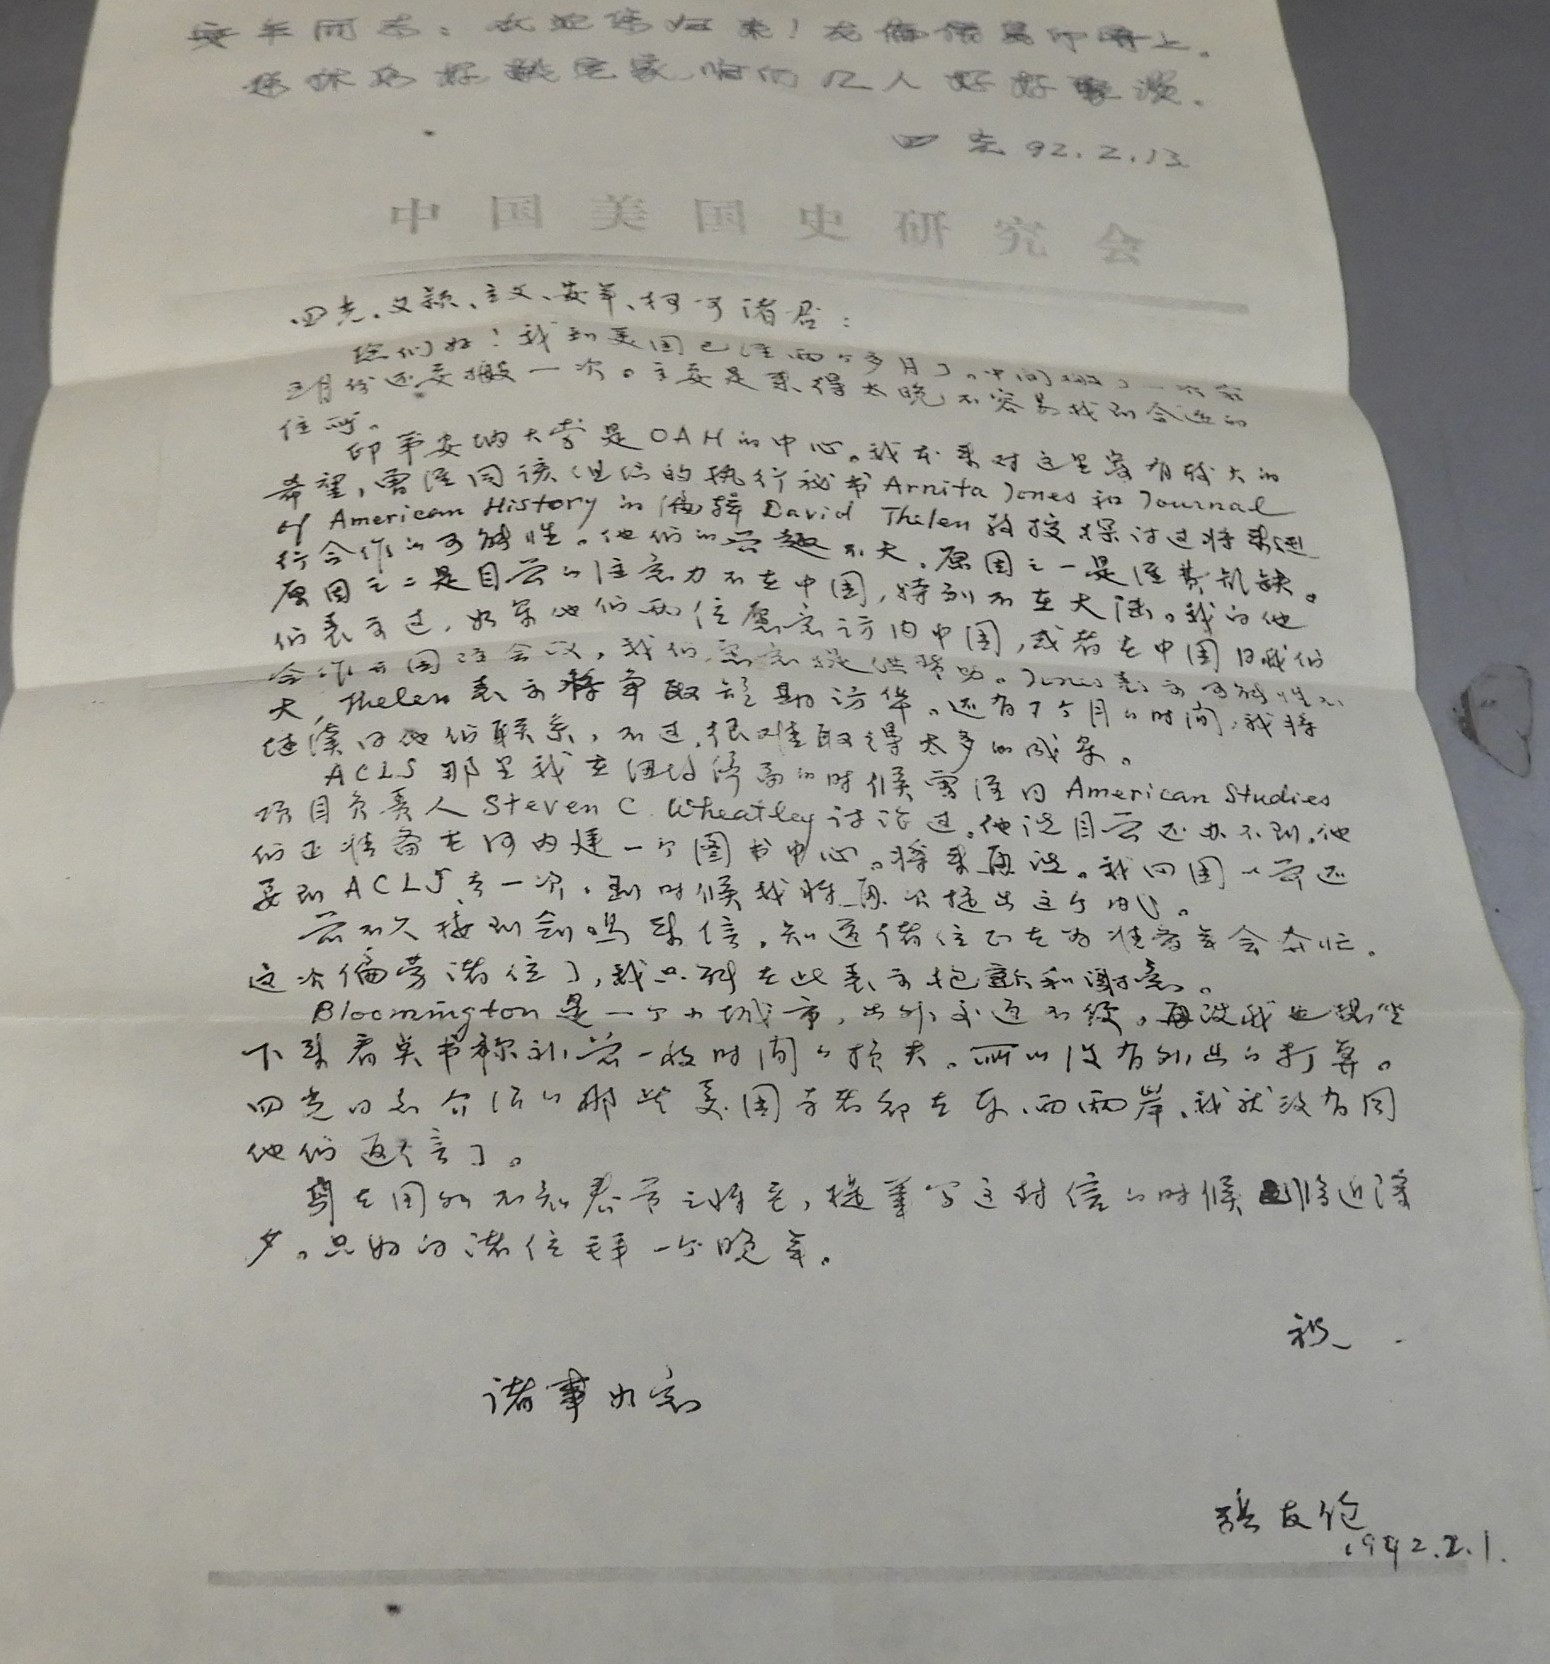 安年同志：欢迎你归来！友伦信复印寄上。
咱们几人好好聚谈。
四光 92.2.13
中国美国史研究会
四光、文颖、主文、安年、柯可诸君：
您们好！我到美国已经两个多月了。中间搬了一次家
三月份还要搬一次。主要是来得太晚，不容易找到合适的
住所。
印第安纳大学是OAH的中心。我本来对这里寄有较大的
希望，曾经同该组织的执行秘书Arnita Jones和Journal
of American History的编辑David Thelen教授探讨过将来进
行合作的可能性。他们的兴趣不大，原因之一是经费短缺。
原因之二是目前的注意力不在中国，特别不在大陆。我向他
们表示过，如果他们两位愿意访问中国，或者在中国同我们
合作开国际会议，我们愿意提供帮助。Jones表示可能性不
大，Thelen表示将争取短期访华。还有7个月的时间，我将
继续同他们联系，不过，很难取得太多的成果。
ACLS那里我在纽约停留的时候曾经同American Studies
项目负责人Steven C. Wheatley讨论过。他说目前还办不到，他
们正准备在河内建一个图书中心。将来再说。我回国以前还
要到ACLS去一次，到时候我将再次提出这个问题。
前不久接到剑鸣来信，知道诸位正在为准备年会奔忙。
这次偏劳诸位了，我只能在此表示抱歉和谢意。
Bloomington是一个小城市，出外交通不便。再说我也想坐
下来看类书弥补前一段时间的损失。所以没有外出的打算。
四光同志介绍的那些美国学者都在东、西两岸，我就没有同
他们通信了。
身在国外不知春节之将至，提笔写这封信的时候已临近除
夕。只好向诸位拜一个晚年。
祝
诸事如意
张友伦
1992.2.1.